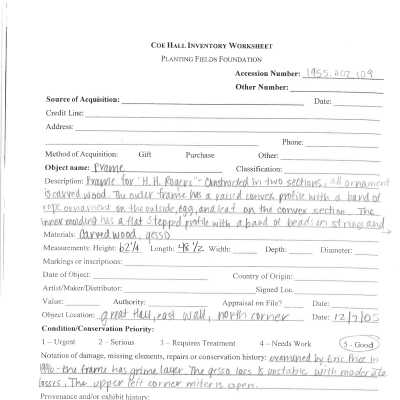 COE HALL INVENTORY WORKSHEET
PLANTING FIELDS FOUNDATION
Accession Number: 1955.202.109
Other Number:
Source of Acquisition: Date:
Credit Line:
Address:
Phone:
Method of Acquisition: Gift Purchase Other:
Object name: Frame Classification:
Description: Frame for "H.H. Rogers" - Constructed in two sections, all ornament
is carved wood. The outer frame has a raised convex profile with a band of
rope ornament on the outside, egg, and leaf on the convex section. The
inner molding has a flat stepped profile with a band of beads on string and
Materials: Carved wood, gesso
Measurements: Height: 62 1/4 Length: 48 1/2 Width: Depth: Diameter:
Markings or inscriptions:
Date of Object: Country of Origin:
Artist/Maker/Distributor: Signed Loc.
Value: Authority: Appraisal on File? Date:
Object Location: great Hall, east wall, north corner Date: 12/7/05
Condition/Conservation Priority:
1 – Urgent 2 – Serious 3 – Requires Treatment 4 – Needs Work 5 - Good
Notation of damage, missing elements, repairs or conservation history: examined by Eric Price in
1990 - the frame has grime layer. The gesso loss is unstable with moderate
losses. The upper left corner miter is open.
Provenance and/or exhibit history: